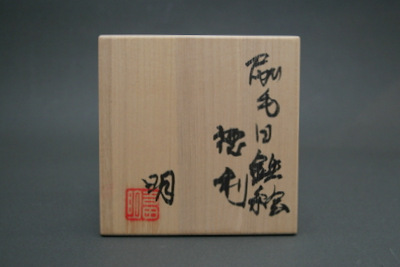 刷毛目鉄絵
徳利
明